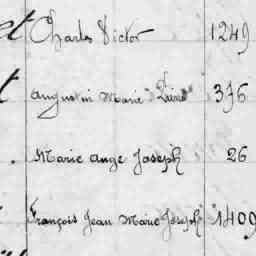 et Charles Victor 1249
t augustin Marie 376
. Marie ange Joseph 26
François Jean Marie Joseph 1409